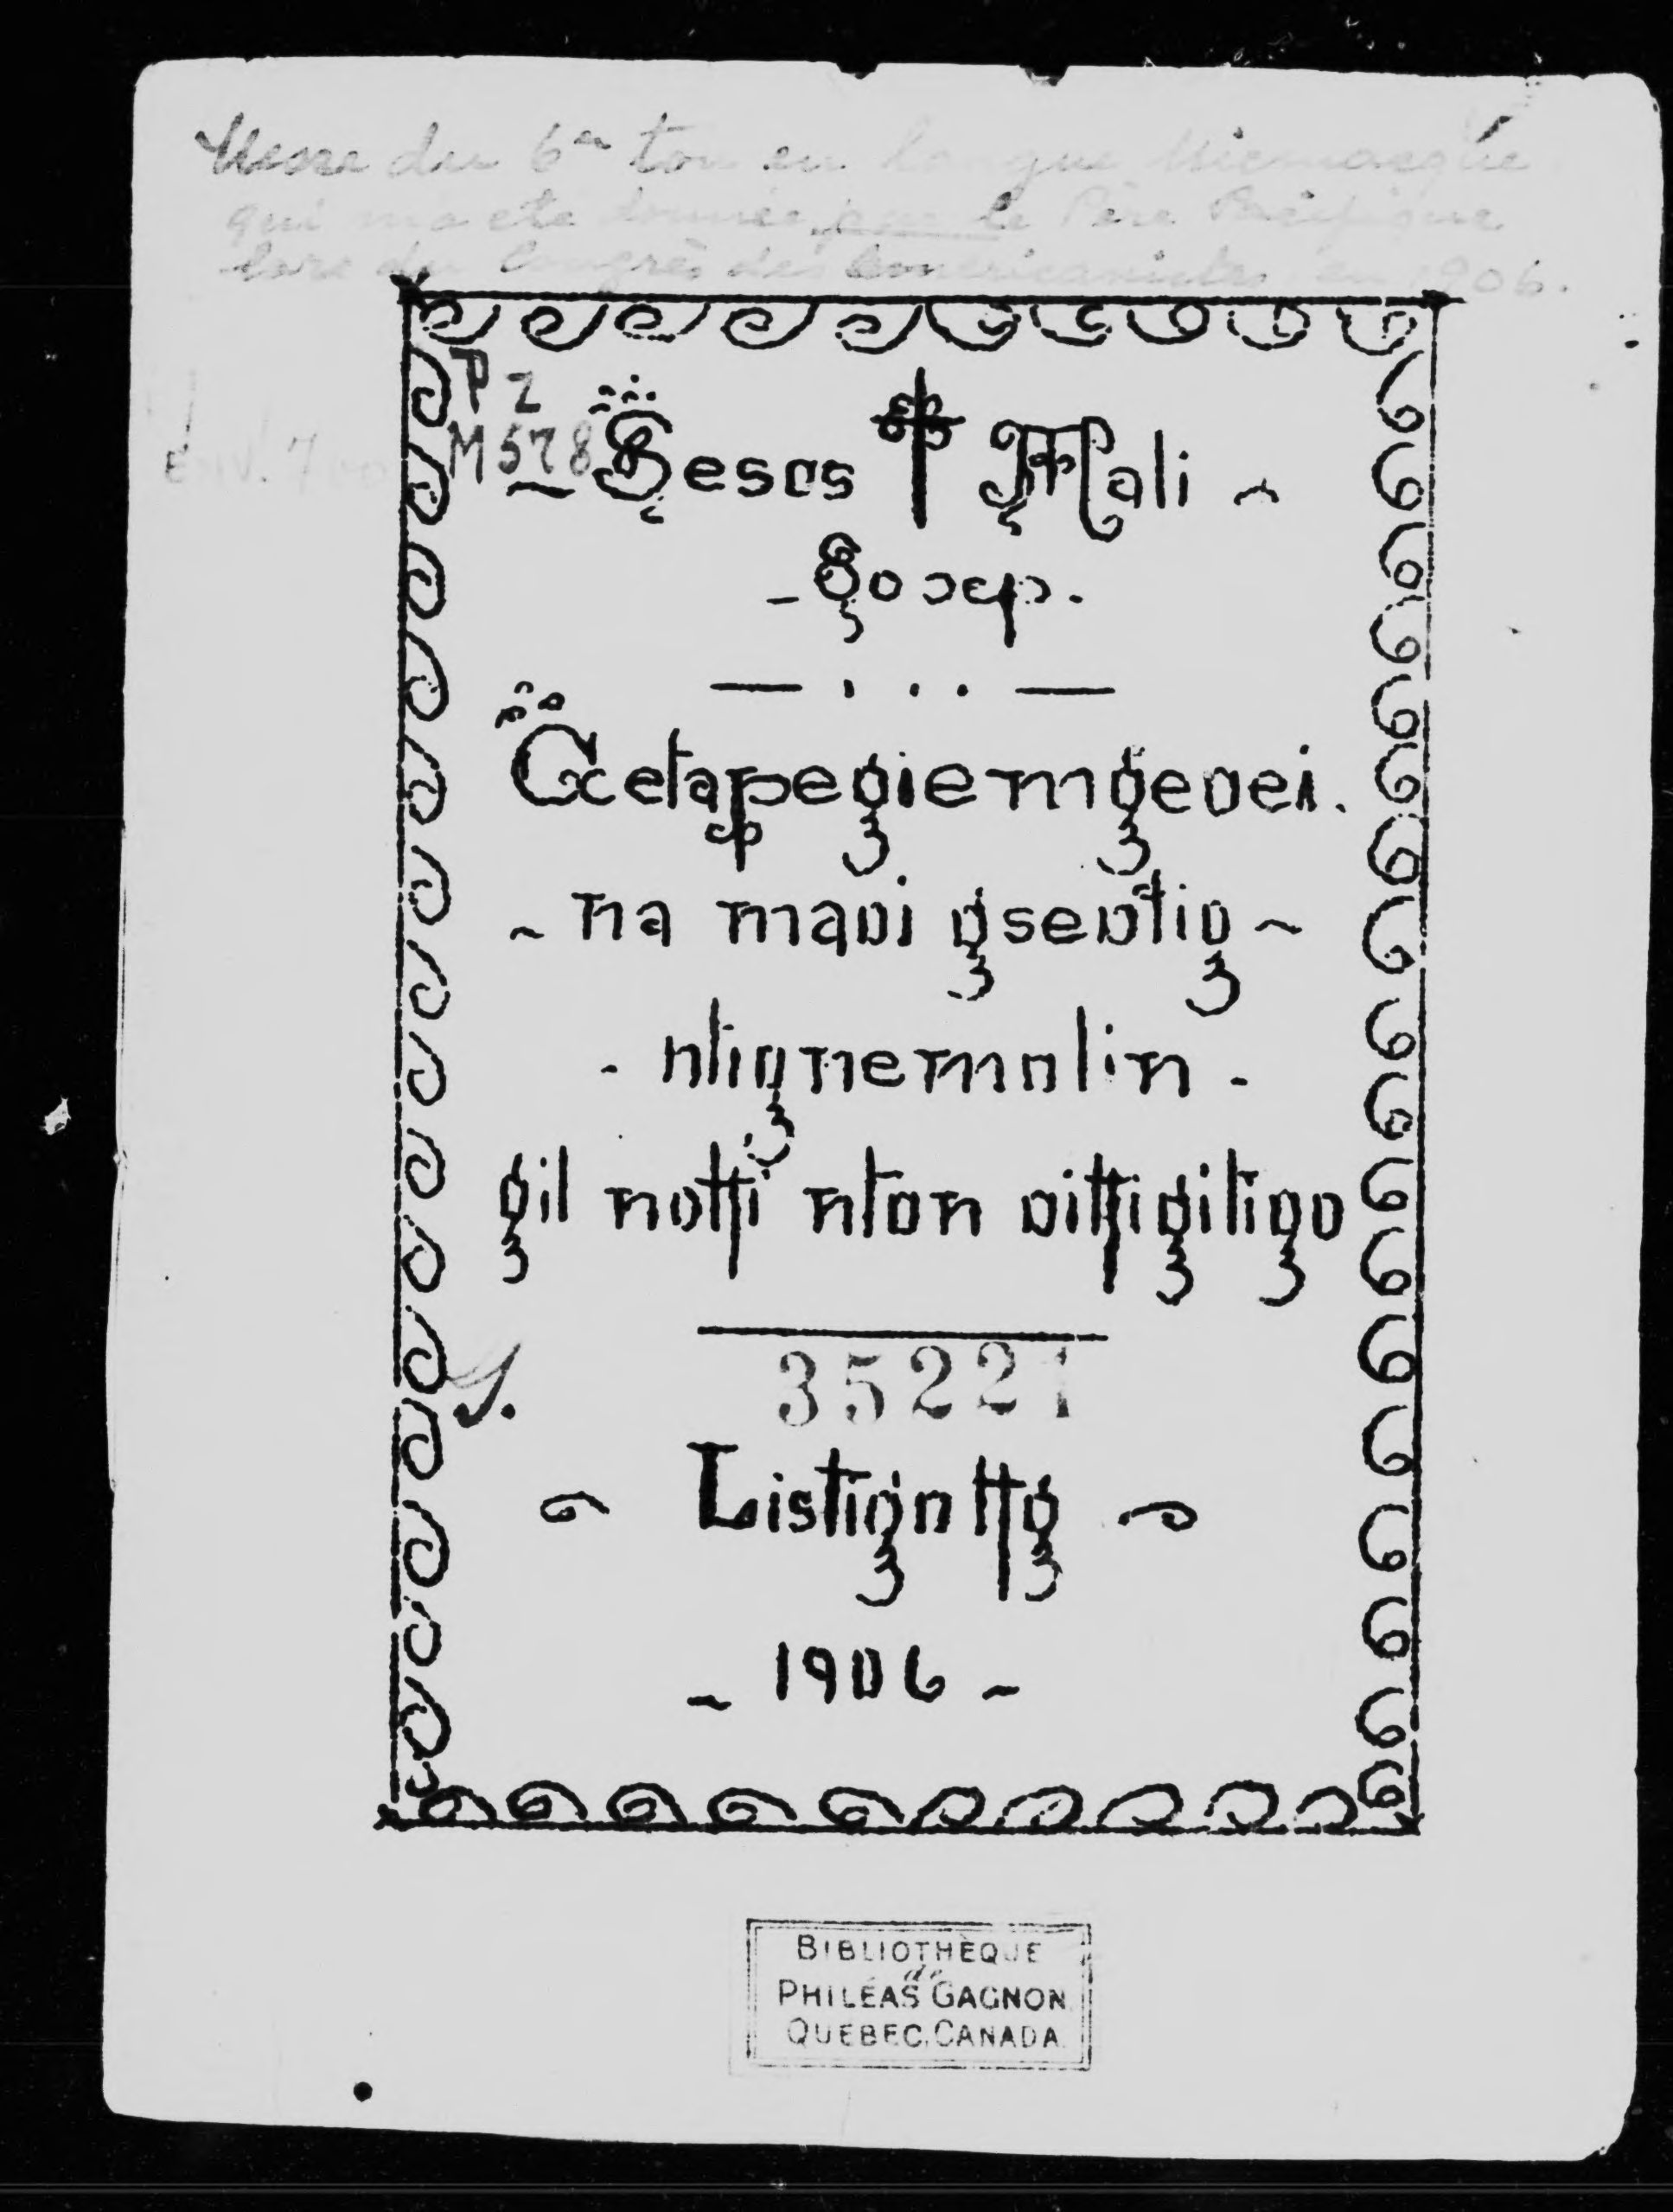 Messe du 6e ton en langue Micmacque
qui m'a été donnée par le Père Pacifique
lors du Congrès des Américanistes en 1906.
P Z
M 578
Env. 700
Sesos Mali
Gosep.
Getapegiemgeoei.
na maoi gseotig
nlignemnlin
gil nottji nton oittjigitigo
S.
35221
Listignttjg
1906
BIBLIOTHÈQUE
de
PHILÉAS GAGNON
QUÉBEC, CANADA